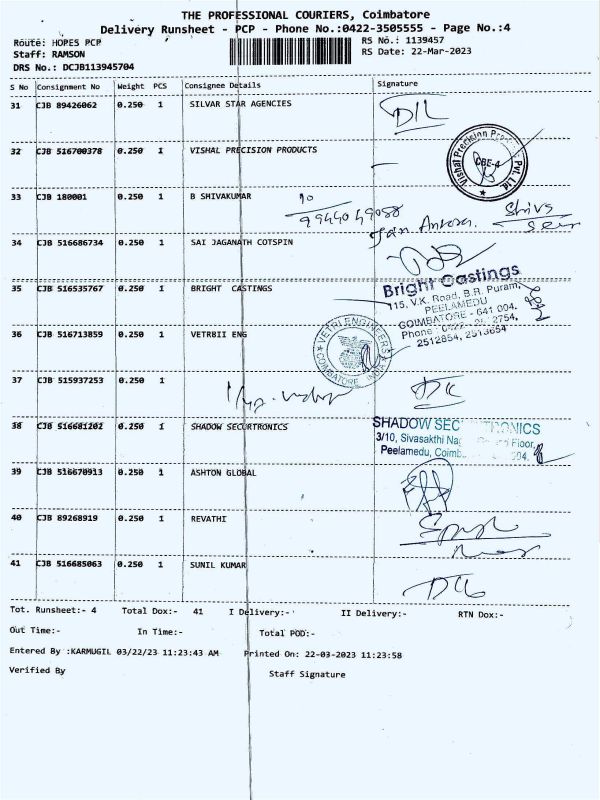 THE PROFESSIONAL COURIERS, Coimbatore
Delivery Runsheet - PCP - Phone No.:0422-3505555 - Page No.:4
Route: HOPES PCP
RS No.: 1139457
Staff: RAMSON
RS Date: 22-Mar-2023
DRS No.: DCJB113945704
S No Consignment No Weight PCS Consignee Details Signature
31 CJB 89426062 0.250 1 SILVAR STAR AGENCIES
32 CJB 516700378 0.250 1 VISHAL PRECISION PRODUCTS
Vishal Precision Pvt. Ltd.
CBE-4
33 CJB 180001 0.250 1 B SHIVAKUMAR
9944049088
Shiva
34 CJB 516686734 0.250 1 SAI JAGANATH COTSPIN
35 CJB 516535767 0.250 1 BRIGHT CASTINGS
Bright Castings
115, V.K. Road, B.R. Puram,
PEELAMEDU
COIMBATORE - 641 004.
Phone : 0422- 2754,
2512854, 2513654
36 CJB 516713859 0.250 1 VETRBII ENG
VETRI ENGINEERS
COIMBATORE INDIA
37 CJB 515937253 0.250 1
38 CJB 516681202 0.250 1 SHADOW SECURTRONICS
SHADOW SEC TRONICS
3/10, Sivasakthi Floor,
Peelamedu, Coimb 004.
39 CJB 516670913 0.250 1 ASHTON GLOBAL
40 CJB 89268919 0.250 1 REVATHI
41 CJB 516685063 0.250 1 SUNIL KUMAR
Tot. Runsheet:- 4 Total Dox:- 41 I Delivery:- II Delivery:- RTN Dox:-
Out Time:- In Time:- Total POD:-
Entered By :KARMUGIL 03/22/23 11:23:43 AM Printed On: 22-03-2023 11:23:58
Verified By Staff Signature